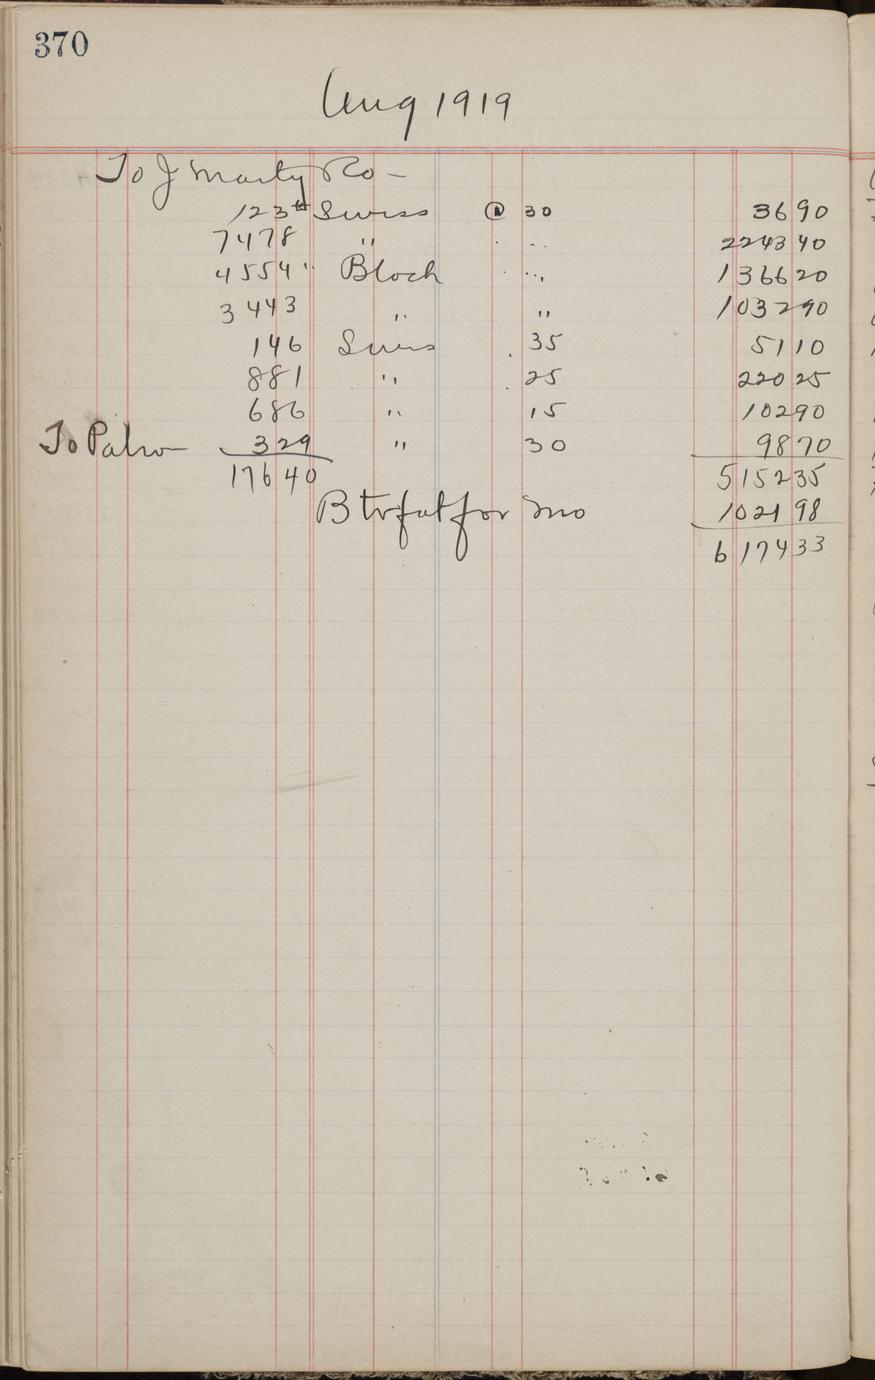 370
Aug 1919
To J Marty Co -
123# Swiss @ 30 36 90
7478 " " 2243 40
4554 " Block " 1366 20
3443 " " 1032 90
146 Swiss 35 51 10
881 " 25 220 25
686 " 15 102 90
To Patro 329 " 30 98 70
17640 5152 35
Btrfat for mo 1021 98
6174 33